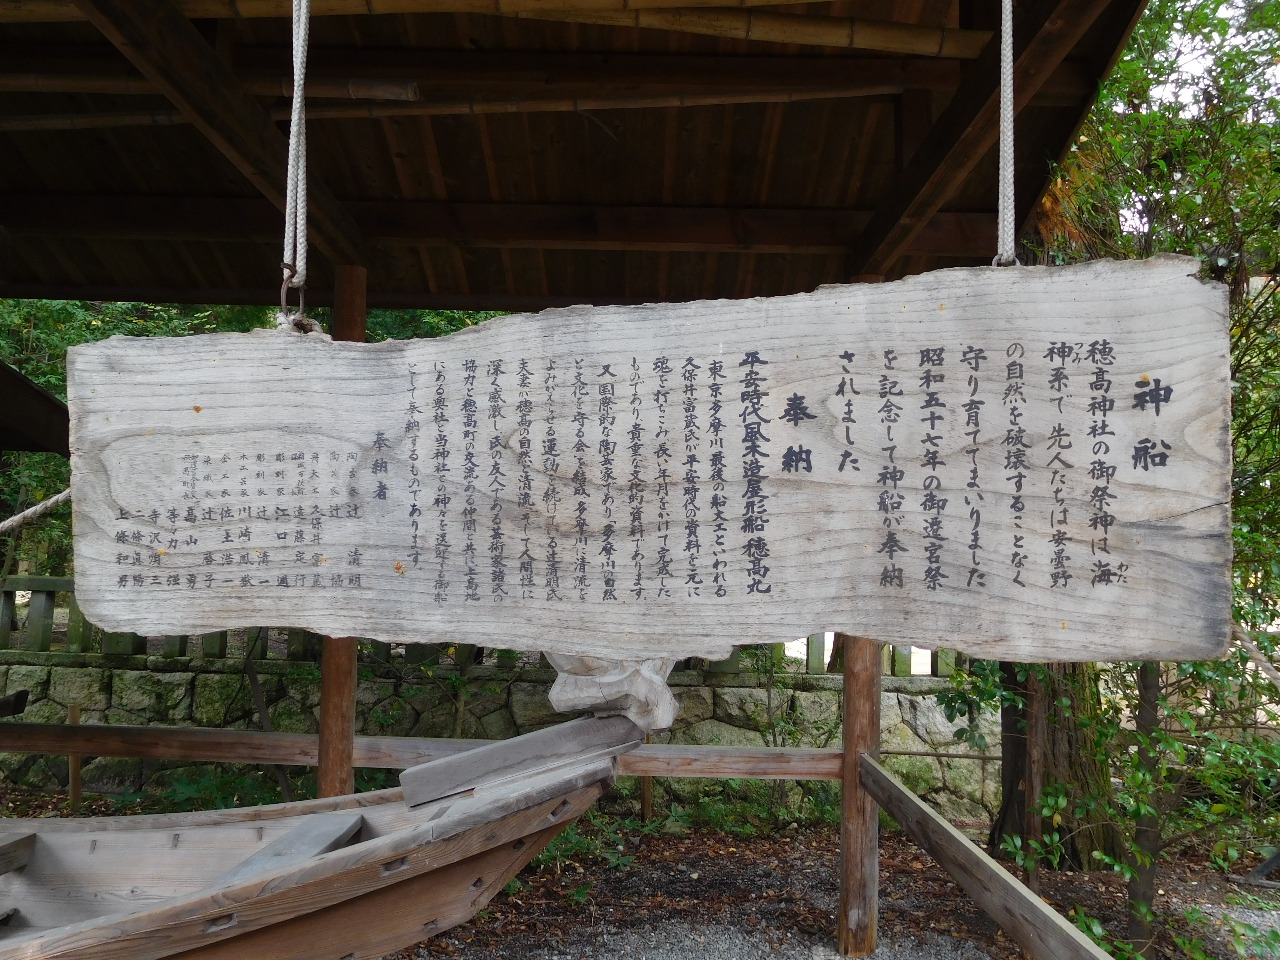 神船
穂高神社の御祭神は海
わた
神系で先人たちは安曇野
つみ
の自然を破壊することなく
守り育ててまいりました
昭和五十七年の御遷宮祭
を記念して神船が奉納
されました
奉納
平安時代風木造屋形船穂高丸
東京多摩川最後の船大工といわれる
久保井富蔵氏が平安時代の資料を元に
魂を打ちこみ長い年月をかけて完成した
ものであり貴重な文化的資料であります
又国際的な陶芸家であり多摩川の自然
と文化を守る会を結成多摩川に清流を
よみがえらせる運動を続けている辻清明氏
夫妻が穂高の自然と清流そして人間性に
深く感激し氏の友人である芸術家諸氏の
協力と穂高町の交流ある仲間と共に上高地
にある奥社と当神社との神々を送迎する御船
として奉納するものであります
奉納者
陶芸家 辻 清明
陶芸家 辻 協
舟大工 久保井富蔵
遠藤定行
彫刻家 江口 週
彫刻家 辻 清一
木工芸家 川崎鳳敷
金工家 佐土浩一
染織家 辻 啓子
高山 勇
等々力 強
寺沢順三
二條眞陽
上條和男